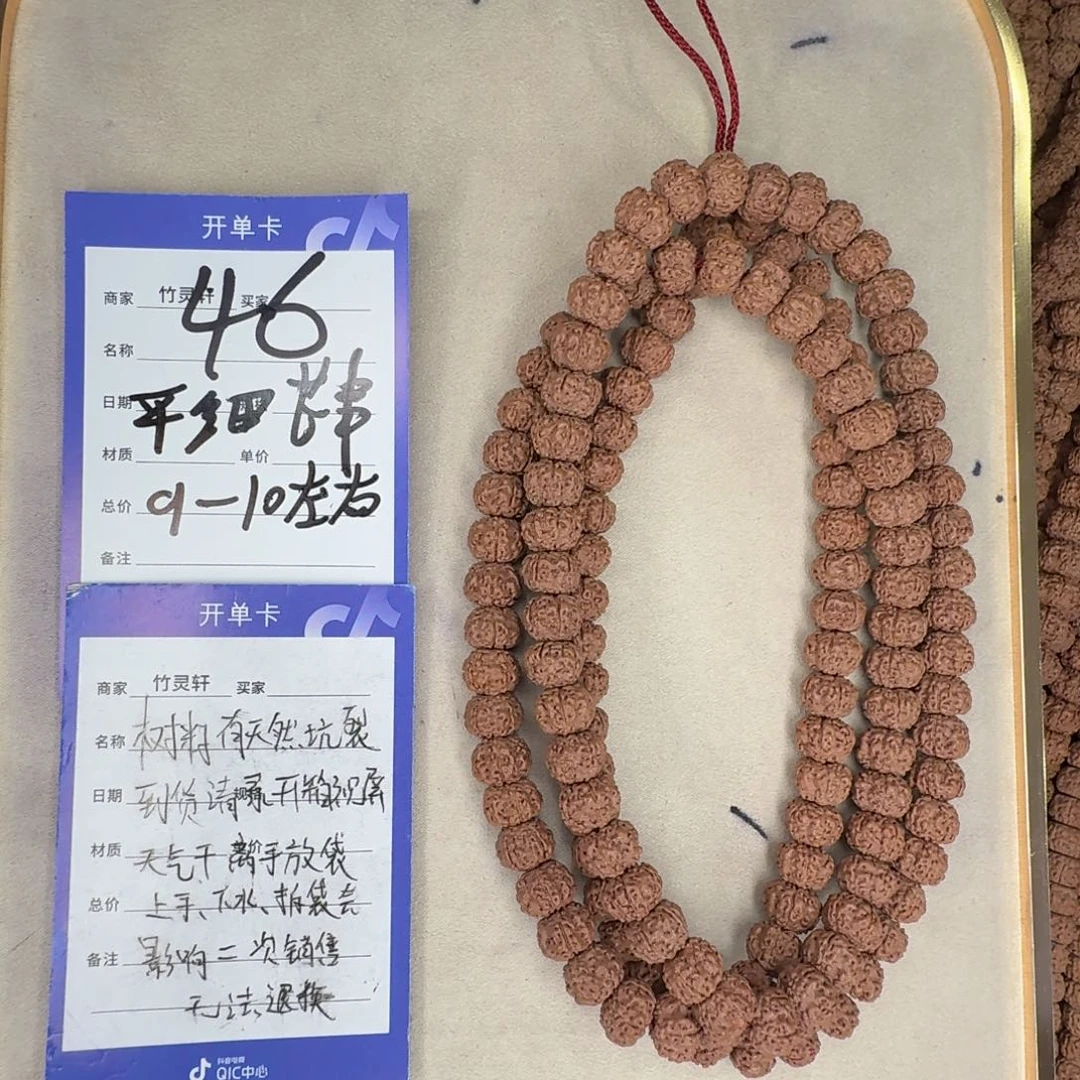 开单卡
商家 竹灵轩 买家
46
名称
日期 平多四
材质 单价
总价 9-10左右
备注
开单卡
商家 竹灵轩 买家
名称 材料有天然坑裂
日期 到货请录开箱视屏
材质 天气干离手放袋
总价 上手、下水、拍袋会
备注 影响二次销售
无法退换
抖音电商
QIC中心